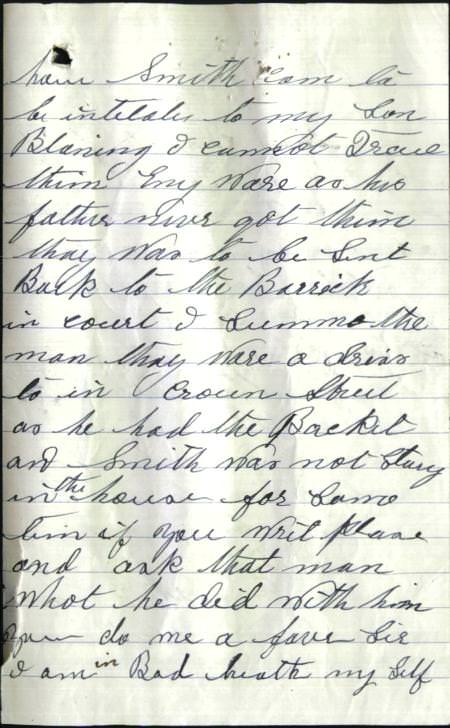 how Smith Com to
be intitales to my Son
Blaning I cannot Trace
them Eny Ware as his
father never got them
thay Was to be Sent
Back to the Barrick
in court I Summo the
man thay Ware a
to in Crown Street
as he had the Packet
and Smith was not Stay
in the house for Some
tim if you writ please
and ask that man
What he did with him
you do me a faver Sir
I am in Bad heath my Self